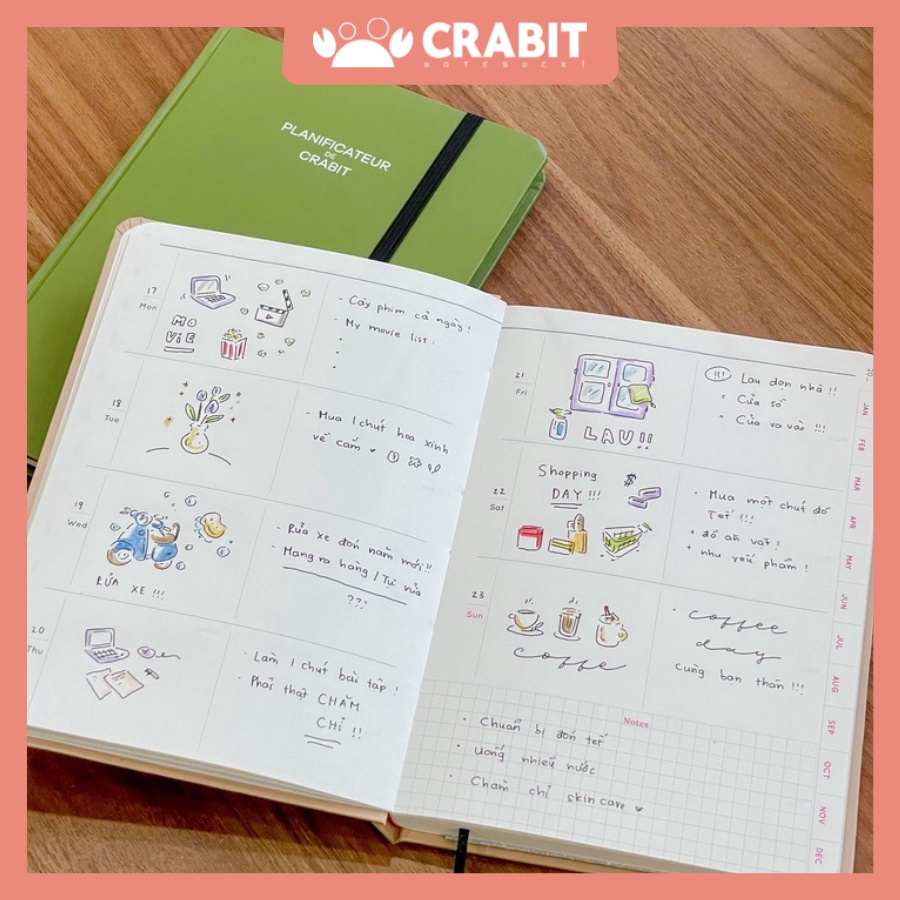 CRABIT
NOTEBUCK!
PLANIFICATEUR
DE
CRABIT
17
Mon
MO
ViE
- Cày phim cả ngày!
- My movie list:
18
Tue
- Mua 1 chút hoa xinh
về cắm
19
Wed
RỬA XE !!!
- Rửa xe đón năm mới!!
- Mang ra hàng / Tự rửa
???
20
Thu
- Làm 1 chút bài tập!
- Phải thật CHĂM
CHỈ !!
21
Fri
LAU!!
!!! Lau dọn nhà !!
• Cửa sổ
• Cửa ra vào !!!
22
Sat
Shopping
DAY !!!
$
• Mua một chút đồ
Tết !!!
+ đồ ăn vặt!
+ nhu yếu phẩm!
23
Sun
coffe
• coffee
day
cùng bạn thân !!!
Notes
• Chuẩn bị đón tết
• Uống nhiều nước
• Chăm chỉ skin care
20.
JAN
FEB
MAR
APR
MAY
JUN
JUL
AUG
SEP
OCT
NOV
DEC